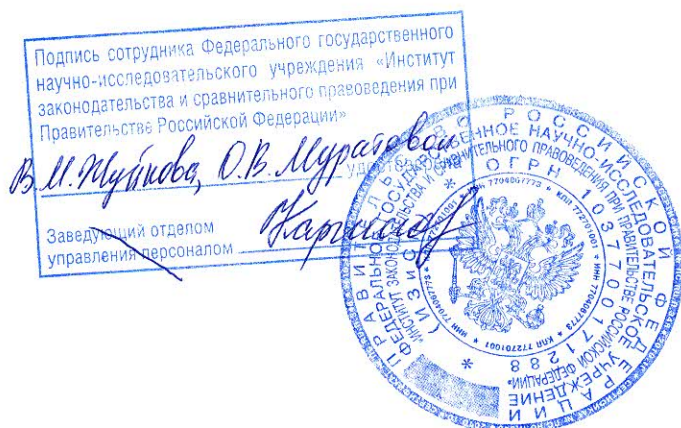 Подпись сотрудника Федерального государственного
научно-исследовательского учреждения «Институт
законодательства и сравнительного правоведения при
Правительстве Российской Федерации»
В.М. Жуйкова, О.В. Муратовой
удостоверяю
Заведующий отделом
управления персоналом
ПРАВИТЕЛЬСТВО РОССИЙСКОЙ ФЕДЕРАЦИИ
ФЕДЕРАЛЬНОЕ ГОСУДАРСТВЕННОЕ НАУЧНО-ИССЛЕДОВАТЕЛЬСКОЕ УЧРЕЖДЕНИЕ
«ИНСТИТУТ ЗАКОНОДАТЕЛЬСТВА И СРАВНИТЕЛЬНОГО ПРАВОВЕДЕНИЯ ПРИ ПРАВИТЕЛЬСТВЕ РОССИЙСКОЙ ФЕДЕРАЦИИ»
(ИЗиСП) * ОГРН 1037700171288 *
ИНН 7704067773 * КПП 772701001 * ИНН 7704067773 * КПП 772701001 *